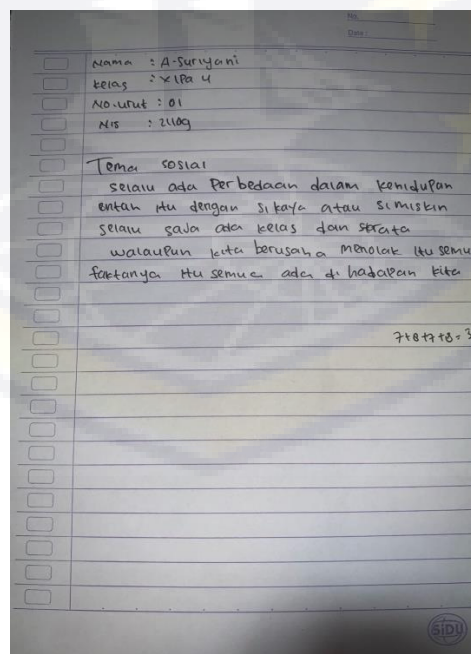 No.
Date :
Nama : A. Suriyani
Kelas : X IPa 4
No.urut : 01
Nis : 21109
Tema sosial
selalu ada Perbedaan dalam kehidupan
entah itu dengan si kaya atau si miskin
selalu saja ada kelas dan strata
walaupun kita berusaha menolak itu semu
faktanya itu semua ada di hadapan kita
7+8+7+8=3
SiDU